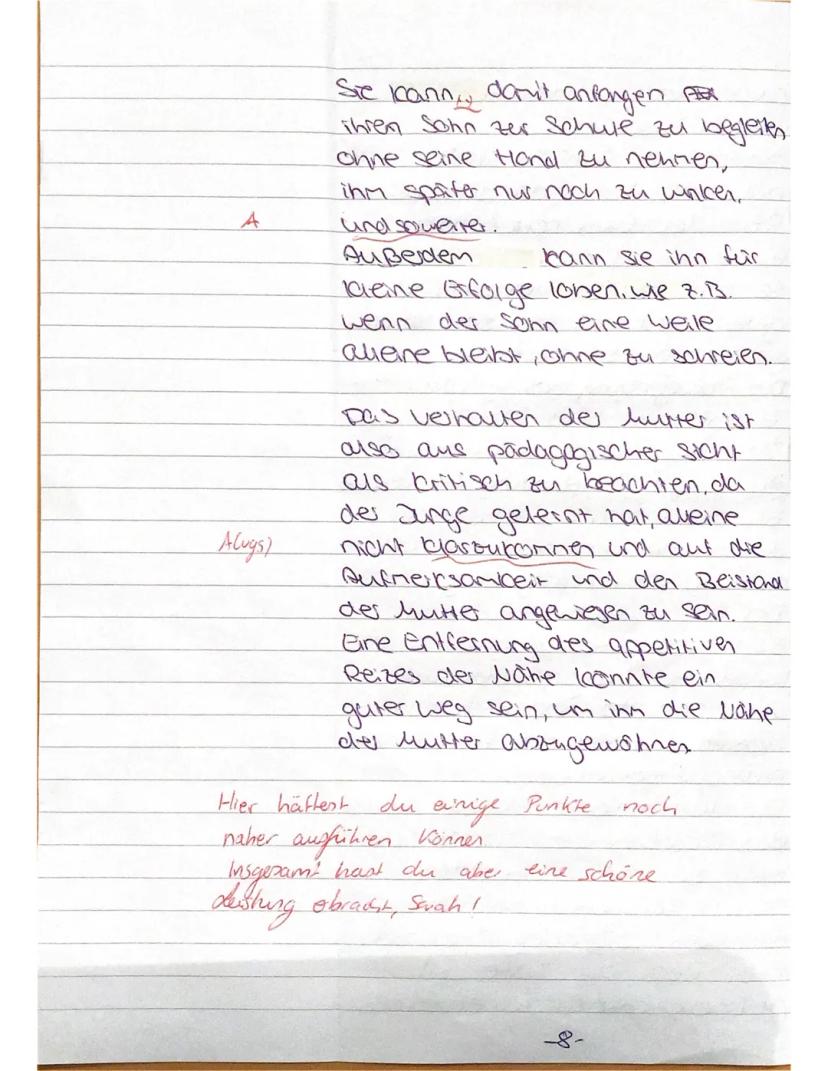 Sie kann, damit anfangen
ihren Sohn zur Schule zu begleiten,
ohne seine Hand zu nehmen,
ihm später nur noch zu winken,
A und soweiter.
Außerdem kann sie ihn für
kleine Erfolge loben, wie z.B.
wenn der Sohn eine Weile
alleine bleibt, ohne zu schreien.
Das Verhalten der Mutter ist
also aus pädagogischer Sicht
als kritisch zu beachten, da
der Junge gelernt hat, alleine
A(ugs) nicht klarzukommen und auf die
Aufmerksamkeit und den Beistand
der Mutter angewiesen zu sein.
Eine Entfernung des appetitiven
Reizes der Nähe könnte ein
guter Weg sein, um ihn die Nähe
der Mutter abzugewöhnen
Hier hättest du einige Punkte noch
naher ausführen können
Insgesamt hast du aber eine schöne
Leistung erbracht, Sarah!
-8-